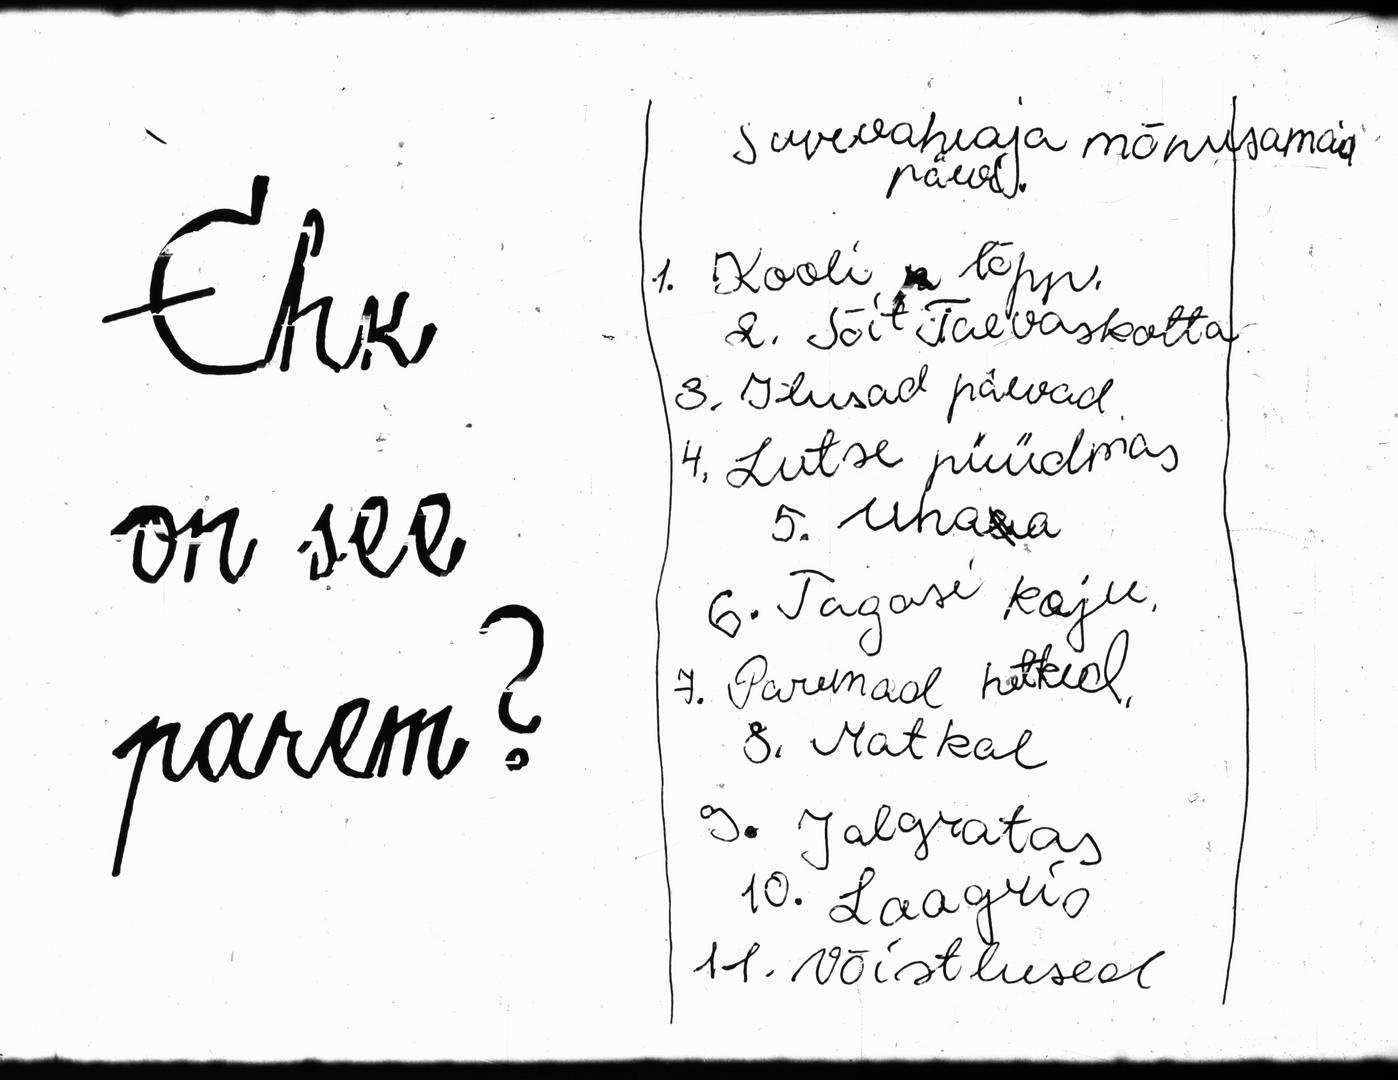 Ehk
on see
parem?
Suvevaheaja mõnusamaid
päevi.
1. Kooli lõpp.
2. Sõit Taevaskotta
3. Ilusad päevad
4. Lutse püüdmas
5.
6. Tagasi koju.
7. Paremad hetked.
8. Matkal
9. Jalgratas
10. Laagris
11. Võistlused